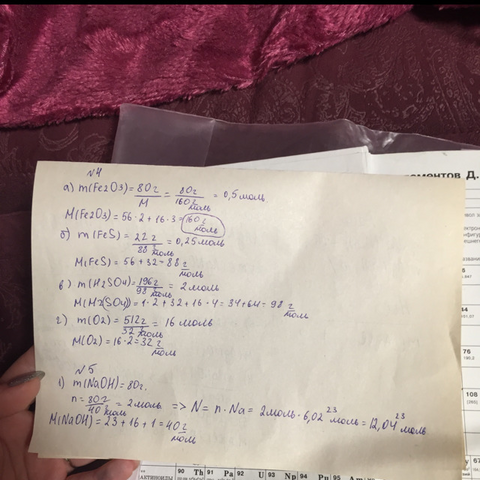 №4
а) m(Fe2O3) = 80г/М = 80г/160 г/моль = 0,5 моль
М(Fe2O3) = 56·2 + 16·3 = 160 г/моль
б) m(FeS) = 22г/88 г/моль = 0,25 моль
М(FeS) = 56 + 32 = 88 г/моль
в) m(H2SO4) = 196г/98 г/моль = 2 моль
М(H2(SO4)) = 1·2 + 32 + 16·4 = 34 + 64 = 98 г/моль
г) m(O2) = 512г/32 г/моль = 16 моль
М(O2) = 16·2 = 32 г/моль
№5
1) m(NaOH) = 80г.
n = 80г/40 г/моль = 2 моль => N = n · Na = 2 моль · 6,02 23 моль = 12,04 23 моль
М(NaOH) = 23 + 16 + 1 = 40 г/моль
ментов Д.
108
90 Th 91 Pa 92 U 93 Np 94 Pu 95 Am
АКТИНОИДЫ